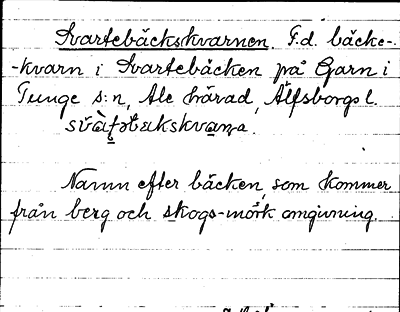 Svartebäckskvarnen. F.d. bäcke-
-kvarn i Svartebäcken på Garn i
Tunge s:n, Ale härad, Älfsborgs l.
Namn efter bäcken, som kommer
från berg och skogs-mörk omgivning.